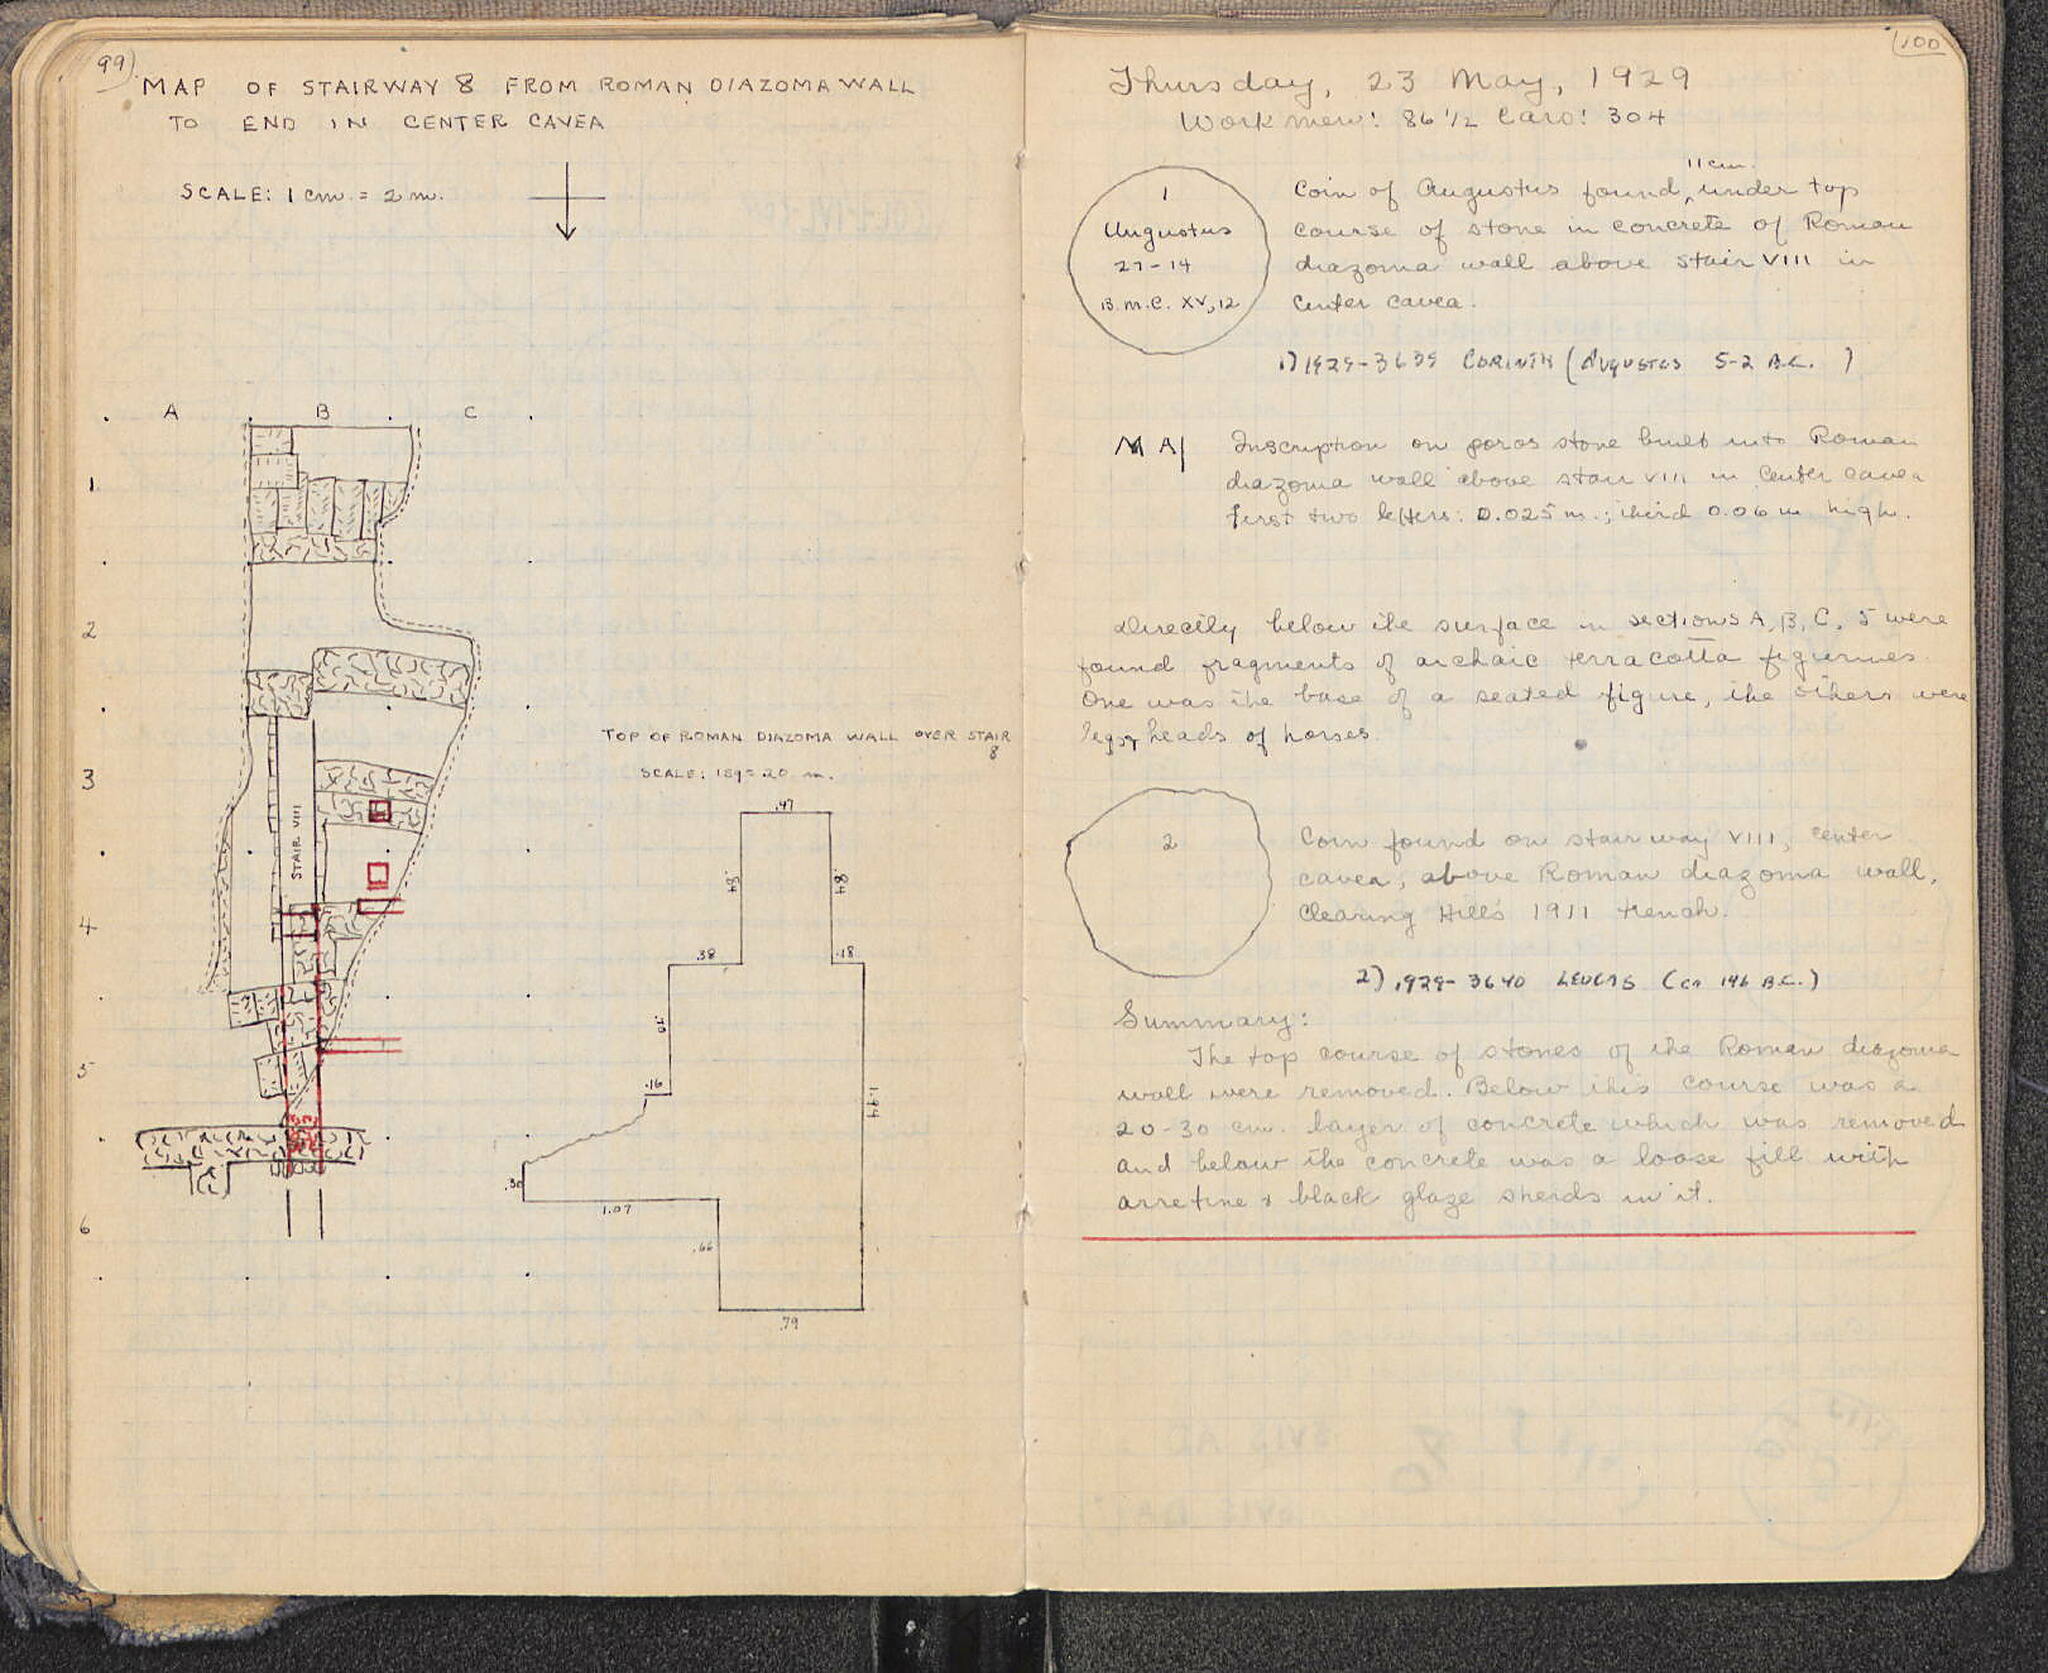 99
MAP OF STAIRWAY 8 FROM ROMAN DIAZOMA WALL
TO END IN CENTER CAVEA
SCALE: 1 cm. = 2 m.
A B C
1
2
3
4
5
6
STAIR VIII
TOP OF ROMAN DIAZOMA WALL OVER STAIR
8
SCALE: 1sq = .20 m.
.47
.84
.38
.18
.70
.16
1.94
.30
1.07
.66
.79
100
Thursday, 23 May, 1929
Workmen: 86 1/2 Cars: 304
1
Augustus
27-14
B.M.C. XV, 12
11 cm.
Coin of Augustus found, under top
course of stone in concrete of Roman
diazoma wall above stair VIII in
Center cavea.
1) 1929-3639 CORINTH (AUGUSTUS 5-2 B.C. )
Inscription on poros stone built into Roman
diazoma wall above stair VIII in Center cavea
first two letters: 0.025 m.; third 0.06 m high.
Directly below the surface in sections A, B, C, 5 were
found fragments of archaic terracotta figurines.
One was the base of a seated figure, the others were
legs & heads of horses.
2
Coin found on stairway VIII, center
cavea, above Roman diazoma wall,
Clearing Hill's 1911 trench.
2) 1929-3640 LEUCAS (ca 146 B.C.)
Summary:
The top course of stones of the Roman diazoma
wall were removed. Below this course was a
20-30 cm. layer of concrete which was removed
and below the concrete was a loose fill with
arretine & black glaze sherds in it.